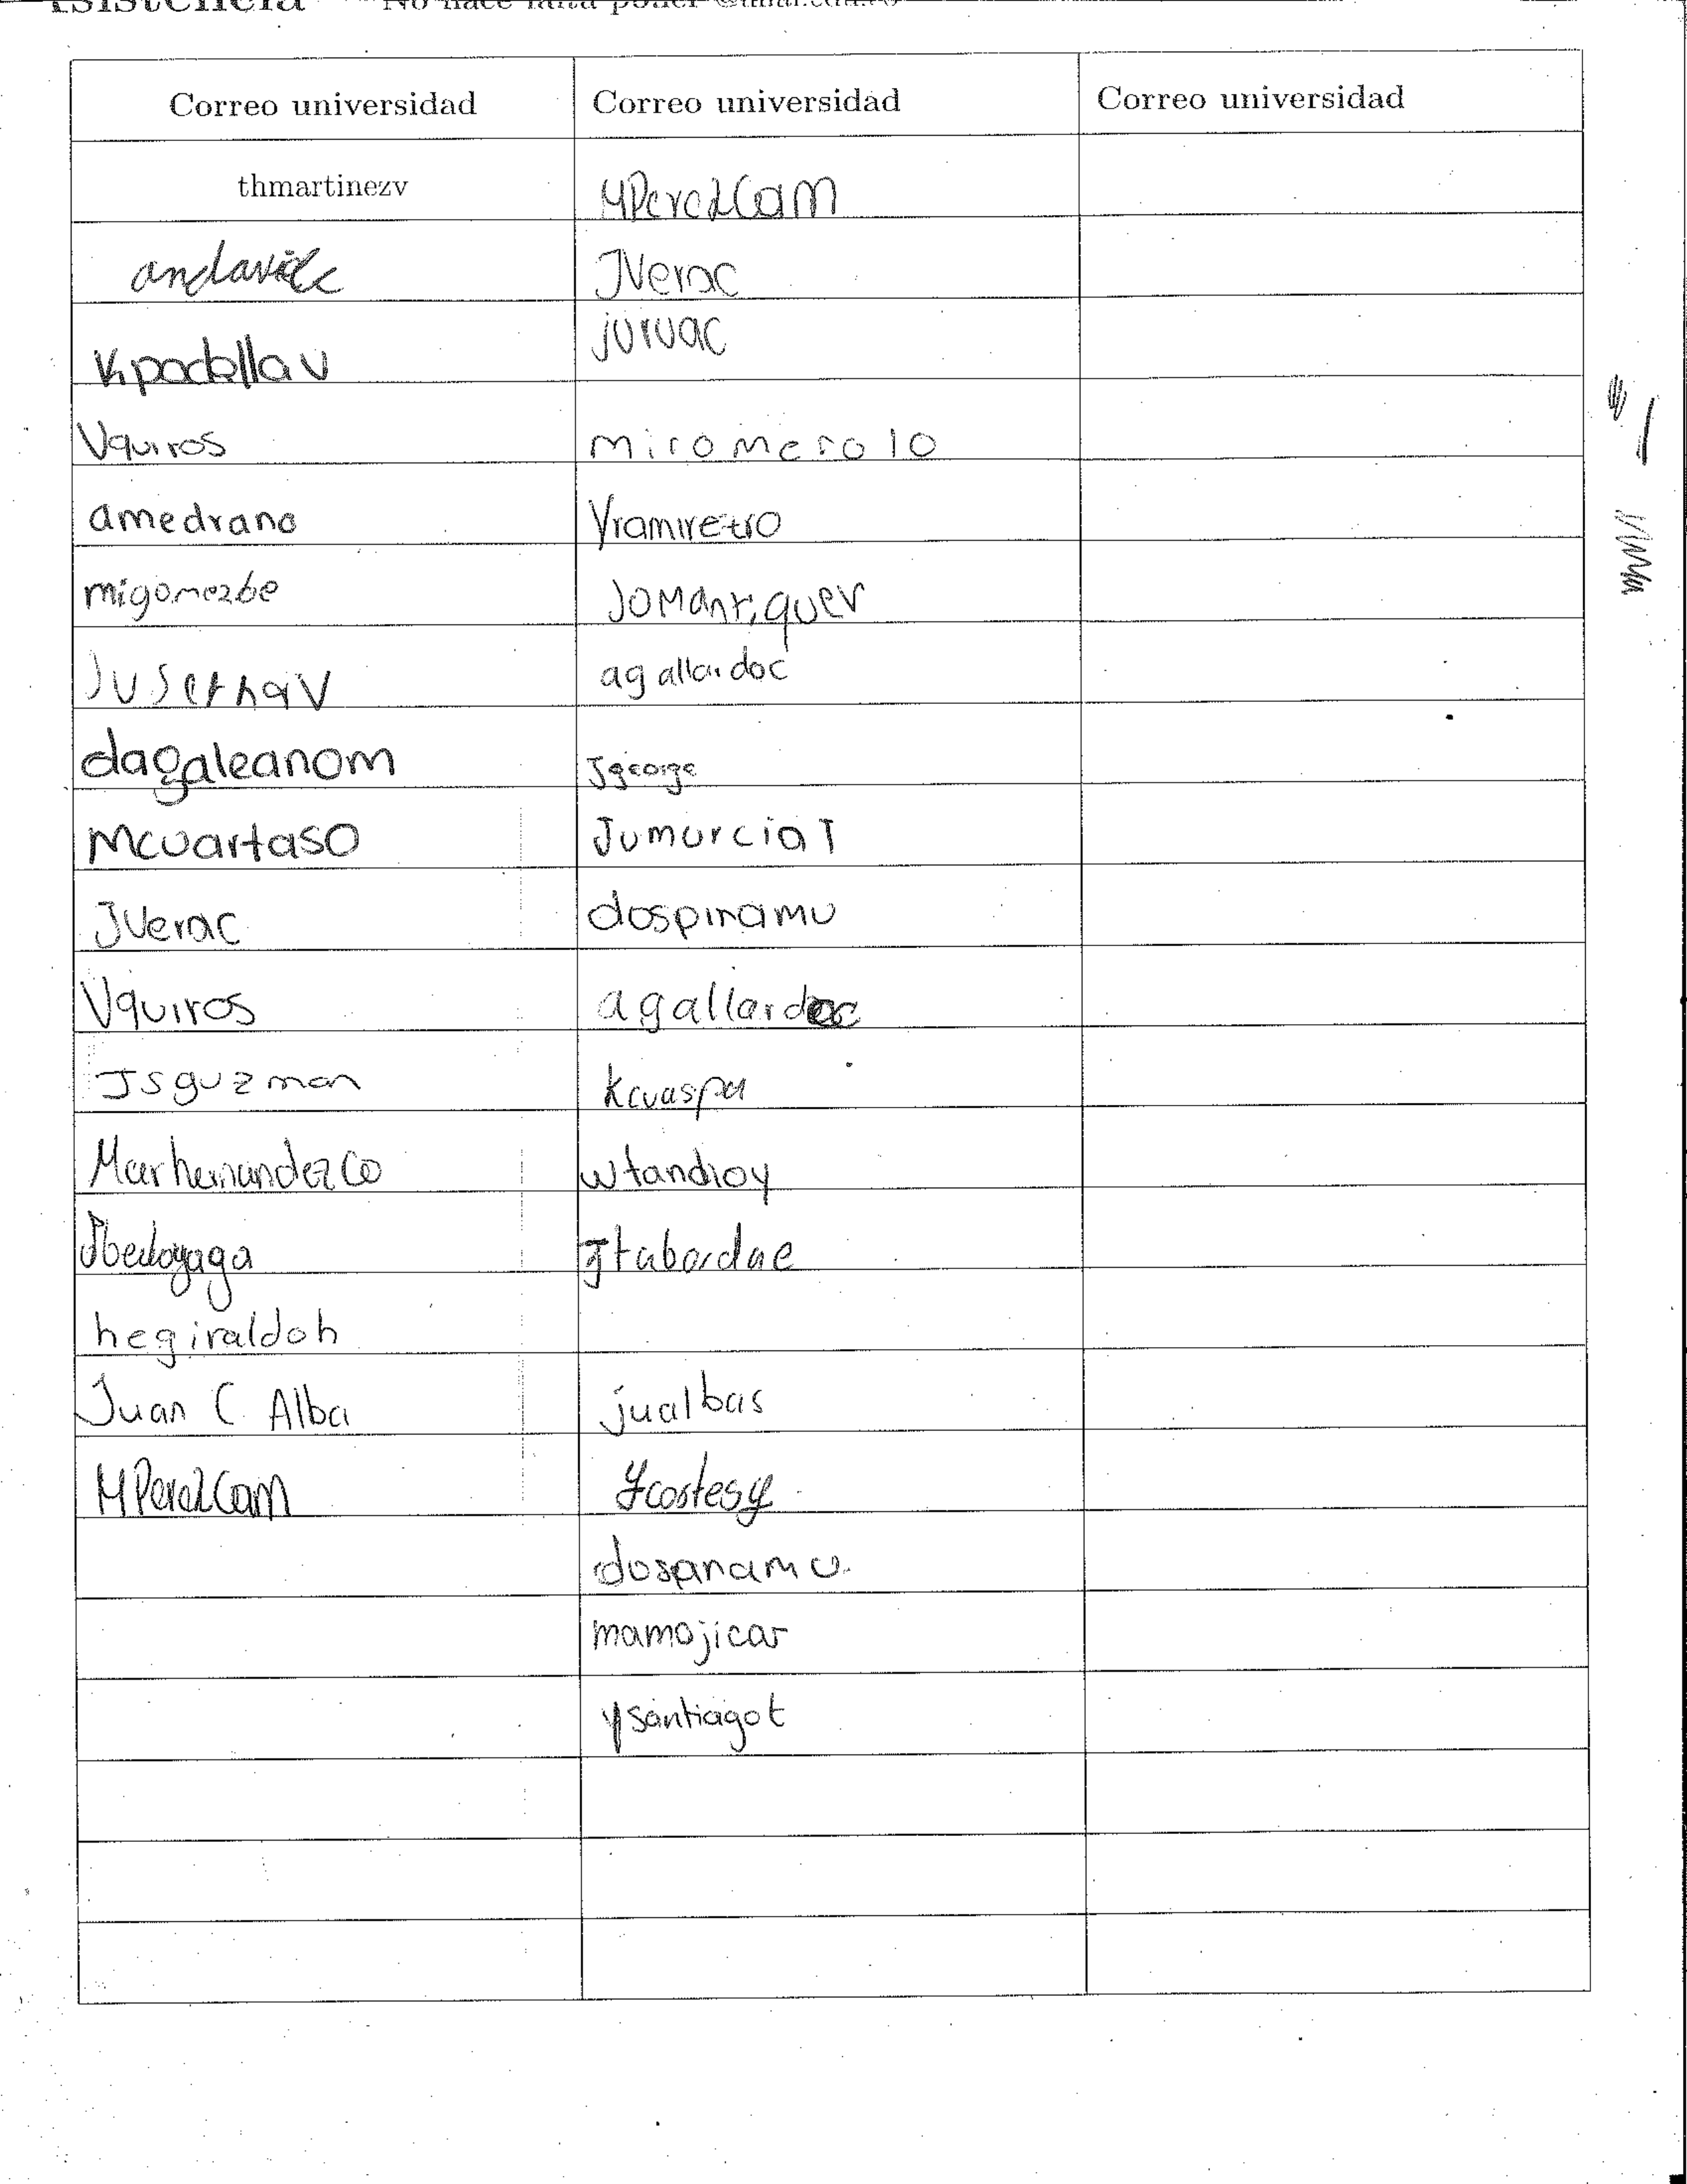 Correo universidad Correo universidad Correo universidad
thmartinezv MPerezCam
JVerac
kpadillav juruac
Vquiros miromero10
amedrano Yramirezro
migomezbe JOManriquev
agallardoc
dagaleanom Jgeorge
Mcuartaso JumurciaT
JVerac dospinamu
Vquiros agallardoc
JSguzman kcuaspa
MarhernandezCo wtandioy
Jbedoyaga Jtabordae
hegiraldoh
Juan C. Alba jualbas
MPerezCam
dospinamu.
mamojicar
ysantiagot